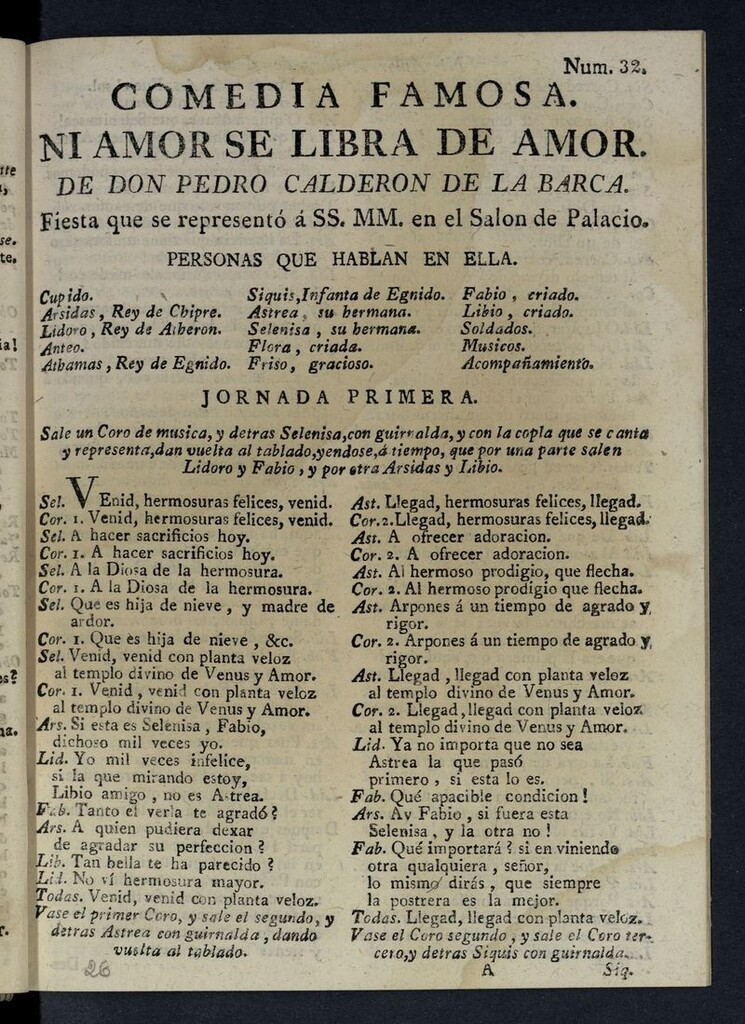 Num. 32.
COMEDIA FAMOSA.
NI AMOR SE LIBRA DE AMOR.
DE DON PEDRO CALDERON DE LA BARCA.
Fiesta que se representó á SS. MM. en el Salon de Palacio.
PERSONAS QUE HABLAN EN ELLA.
Cupido.
Arsidas, Rey de Chipre.
Lidoro, Rey de Atheron.
Anteo.
Athamas, Rey de Egnido.
Siquis, Infanta de Egnido.
Astrea, su hermana.
Selenisa, su hermana.
Flora, criada.
Friso, gracioso.
Fabio, criado.
Libio, criado.
Soldados.
Musicos.
Acompañamiento.
JORNADA PRIMERA.
Sale un Coro de musica, y detras Selenisa, con guirnalda, y con la copla que se canta
y representa, dan vuelta al tablado, yendose, á tiempo, que por una parte salen
Lidoro y Fabio, y por otra Arsidas y Libio.
Sel. VEnid, hermosuras felices, venid.
Cor. 1. Venid, hermosuras felices, venid.
Sel. A hacer sacrificios hoy.
Cor. 1. A hacer sacrificios hoy.
Sel. A la Diosa de la hermosura.
Cor. 1. A la Diosa de la hermosura.
Sel. Que es hija de nieve, y madre de
ardor.
Cor. 1. Que es hija de nieve, &c.
Sel. Venid, venid con planta veloz
al templo divino de Venus y Amor.
Cor. 1. Venid, venid con planta veloz
al templo divino de Venus y Amor.
Ars. Si esta es Selenisa, Fabio,
dichoso mil veces yo.
Lid. Yo mil veces infelice,
si la que mirando estoy,
Libio amigo, no es Astrea.
Fab. Tanto el verla te agradó?
Ars. A quien pudiera dexar
de agradar su perfeccion?
Lib. Tan bella te ha parecido?
Lid. No ví hermosura mayor.
Todas. Venid, venid con planta veloz.
Vase el primer Coro, y sale el segundo, y
detras Astrea con guirnalda, dando
vuelta al tablado.
26
Ast. Llegad, hermosuras felices, llegad.
Cor. 2. Llegad, hermosuras felices, llegad.
Ast. A ofrecer adoracion.
Cor. 2. A ofrecer adoracion.
Ast. Al hermoso prodigio, que flecha.
Cor. 2. Al hermoso prodigio que flecha.
Ast. Arpones á un tiempo de agrado y
rigor.
Cor. 2. Arpones á un tiempo de agrado y
rigor.
Ast. Llegad, llegad con planta veloz
al templo divino de Venus y Amor.
Cor. 2. Llegad, llegad con planta veloz
al templo divino de Venus y Amor.
Lid. Ya no importa que no sea
Astrea la que pasó
primero, si esta lo es.
Fab. Qué apacible condicion!
Ars. Ay Fabio, si fuera esta
Selenisa, y la otra no!
Fab. Qué importará? si en viniendo
otra qualquiera, señor,
lo mismo dirás, que siempre
la postrera es la mejor.
Todas. Llegad, llegad con planta veloz.
Vase el Coro segundo, y sale el Coro ter-
cero, y detras Siquis con guirnalda.
A
Siq.